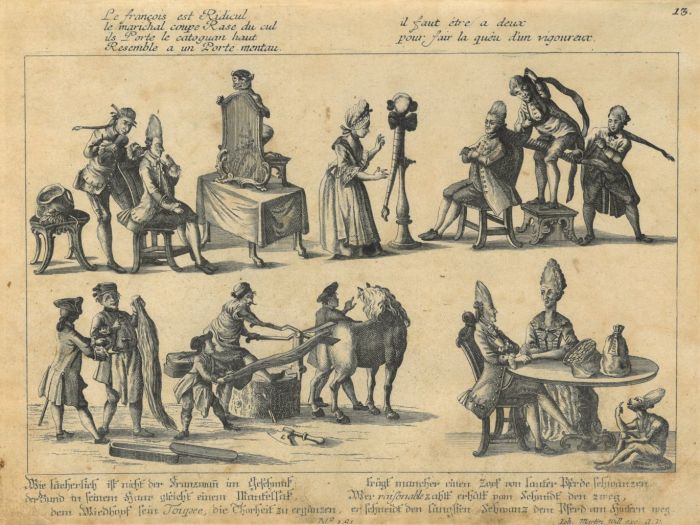 13.
Le françois est Ridicul
le marichal coupe Rase du cul
ils Porte le catoguan haut
Resemble a un Porte montau.
il faut étre a deux
pour fair la quéu d'un vigoureux.
Wie lächerlich ist nicht der Franzmañ im Geschmak
der Bund in seinem Haare gleicht einem Mantelsak
dem Wiedhopf sein Toupee, die Thorheit zu ergänzen
trägt mancher einen Zopf von lauter Pferde schwänzen.
Wer raisonable zahlt erhält vom Schmidt den zweg,
er schneidt den längsten Schwanz dem Pferd am Hintern weg.
Joh. Martin Will exc. a. V.